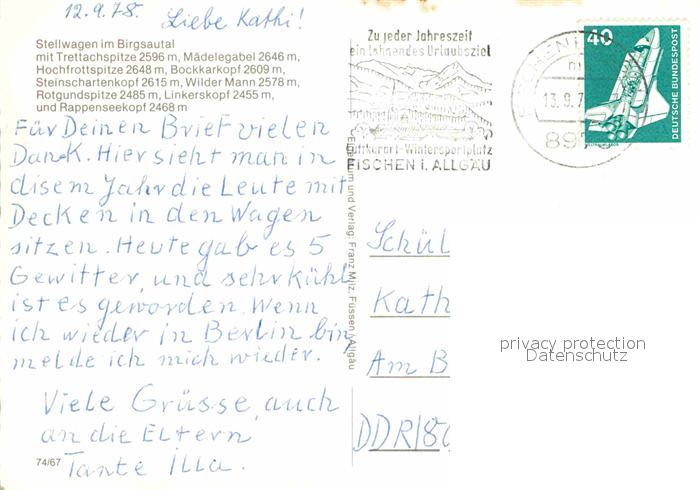 12.9.78. Liebe Kathi!
Stellwagen im Birgsautal
mit Trettachspitze 2596 m, Mädelegabel 2646 m,
Hochfrottspitze 2648 m, Bockkarkopf 2609 m,
Steinschartenkopf 2615 m, Wilder Mann 2578 m,
Rotgundspitze 2485 m, Linkerskopf 2455 m,
und Rappenseekopf 2468 m
Für Deinen Brief vielen
Dank. Hier sieht man in
disem Jahr die Leute mit
Decken in den Wagen
sitzen. Heute gab es 5
Gewitter, und sehr kühl
ist es geworden. Wenn
ich wieder in Berlin bin,
melde ich mich wieder.
Viele Grüsse, auch
an die Eltern
Tante Illa.
74/67
und Verlag: Franz Milz, Füssen / Allgäu
Zu jeder Jahreszeit
ein lohnendes Urlaubsziel
Luftkurort-Wintersportplatz
FISCHEN i. ALLGÄU
FISCHEN
13.9.7
897
40
DEUTSCHE BUNDESPOST
WELTRAUMLABOR
Schül
Kath
Am B
DDR/
privacy protection
Datenschutz